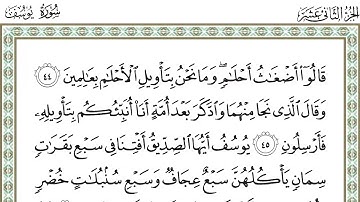 الجزء الثاني عشر سورة يوسف
قَالُوٓا۟ أَضْغَٰثُ أَحْلَٰمٍ ۖ وَمَا نَحْنُ بِتَأْوِيلِ ٱلْأَحْلَٰمِ بِعَٰلِمِينَ ٤٤
وَقَالَ ٱلَّذِى نَجَا مِنْهُمَا وَٱدَّكَرَ بَعْدَ أُمَّةٍ أَنَا۠ أُنَبِّئُكُم بِتَأْوِيلِهِۦ
فَأَرْسِلُونِ ٤٥ يُوسُفُ أَيُّهَا ٱلصِّدِّيقُ أَفْتِنَا فِى سَبْعِ بَقَرَٰتٍ
سِمَانٍ يَأْكُلُهُنَّ سَبْعٌ عِجَافٌ وَسَبْعِ سُنۢبُلَٰتٍ خُضْرٍ